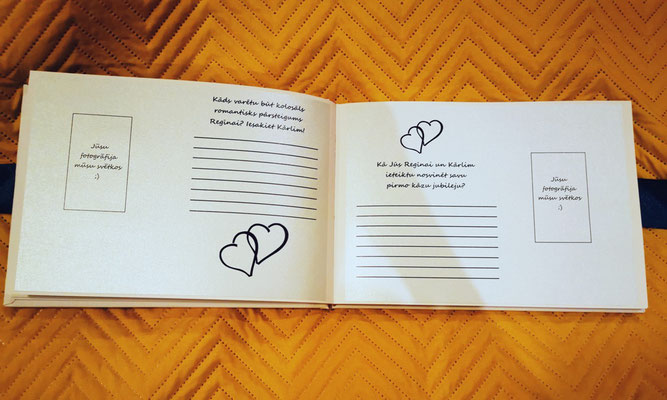 Jūsu
fotogrāfija
mūsu svētkos
:)
Kāds varētu būt kolosāls
romantisks pārsteigums
Reginai? Iesakiet Kārlim!
Kā Jūs Reginai un Kārlim
ieteiktu nosvinēt savu
pirmo kāzu jubileju?
Jūsu
fotogrāfija
mūsu svētkos
:)